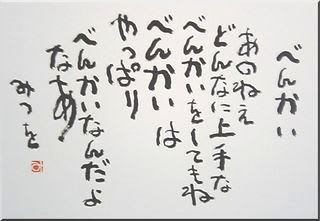 べんかい
あのねえ
どんなに上手な
べんかいをしてもね
べんかいは
やっぱり
べんかいなんだよ
なああ
みつを